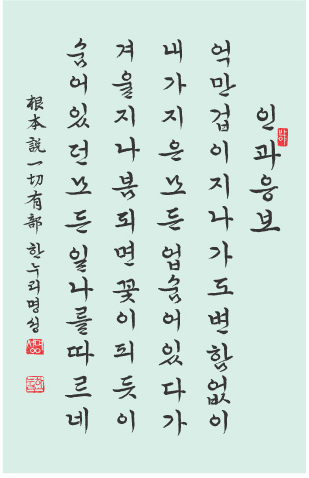 인과응보
억만겁이지나가도변함없이
내가지은모든업숨어있다가
겨울지나봄되면꽃이피듯이
숨어있던모든일나를따르네
根本說一切有部 한누리명상